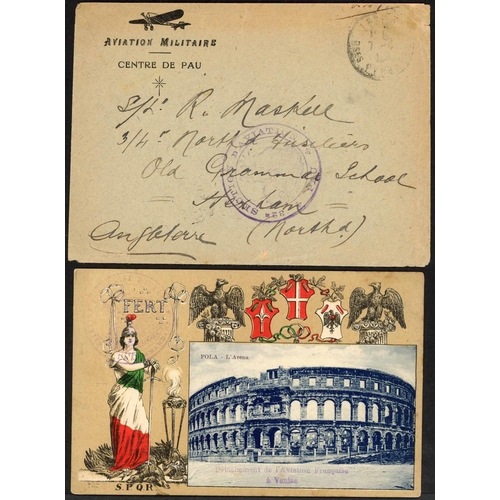 AVIATION MILITAIRE
CENTRE DE PAU
S/Lt R. Maskell
3/4th North'd Fusiliers
Old Grammar School
Hexham
Angleterre (North'd)
SECTION D'AVIATION
FERT
POLA - L'Arena
Détachement de l'Aviation Française
à Venise
S.P.Q.R